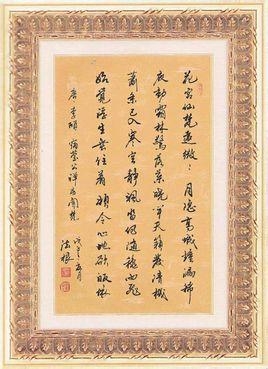 花宮仙梵遠微〻月隱高城鐘漏稀
夜動霜林驚落葉曉聞天籟發清機
蕭條已入寒空靜颯沓仍隨秋雨飛
始覺浮生無住著頓令心地欲皈依
唐李頎宿瑩公禪房聞梵